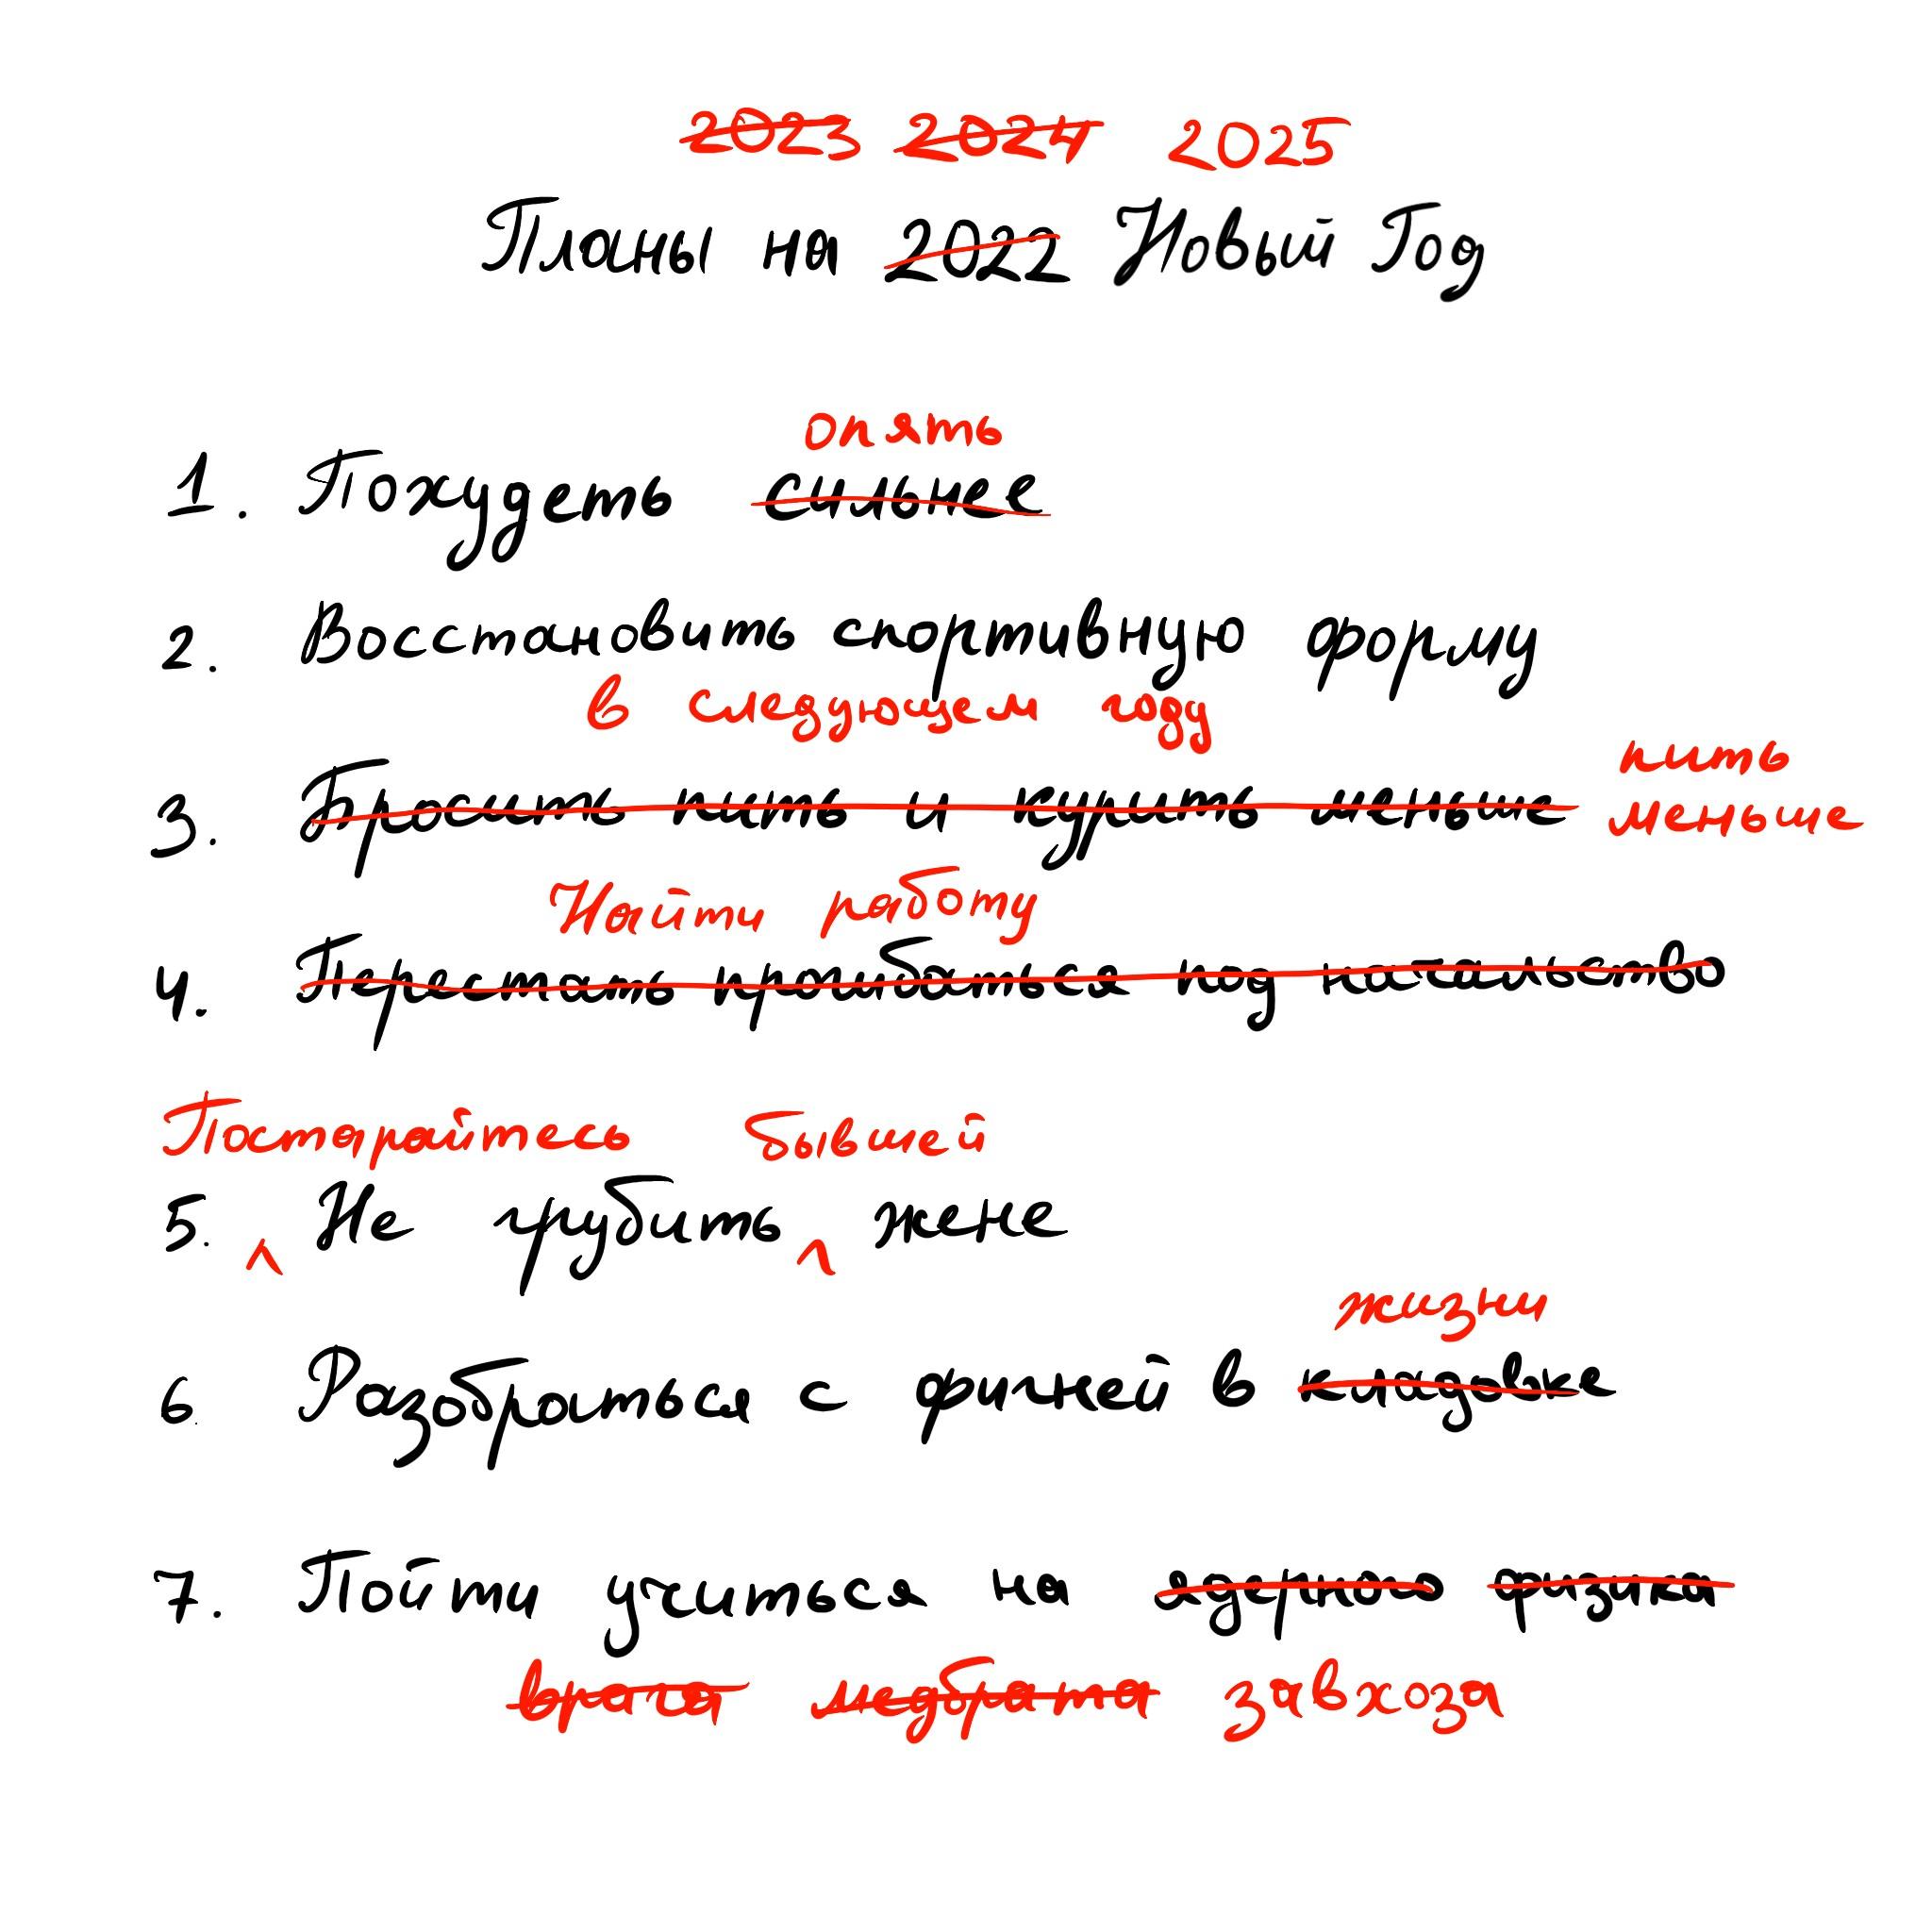 2023 2024 2025
Планы на 2022 Новый Год
опять
1. Похудеть сильнее
2. Восстановить спортивную форму
в следующем году
пить
3. Бросить пить и курить меньше меньше
Найти работу
4. Перестать прогибаться под начальство
Постарайтесь бывшей
5. Не грубить жене
жизни
6. Разобраться с фигнёй в кладовке
7. Пойти учиться на ядерного физика
врача медбрата завхоза